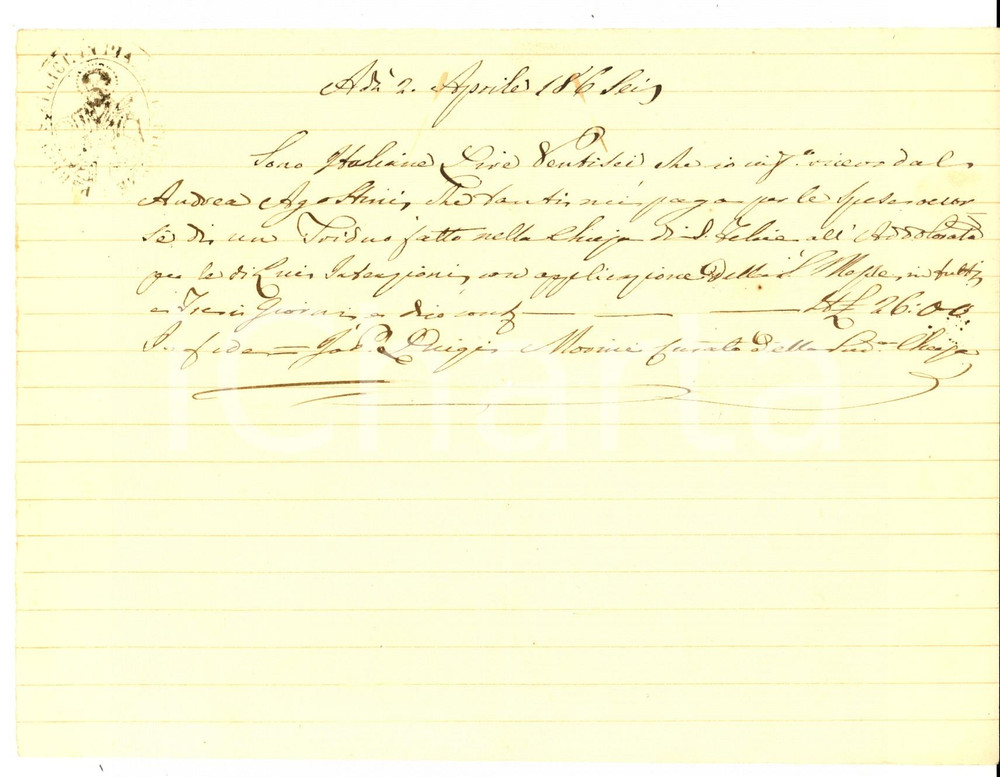 Adì 2. Aprile 186 Sei
Sono Italiane Lire Ventisei che io inf.º ricevo dal
Andrea Agostini, che tanti mi paga per le spese occor
se di un Triduo fatto nella Chiesa di S. Felice all' Addolorata
per le di Lui Intenzioni con applicazione della S. Messa in tutti
e Tre i Giorni e dico L 26:00:
In fede = Luigi Curato della Sud.ª Chiesa
iCharta